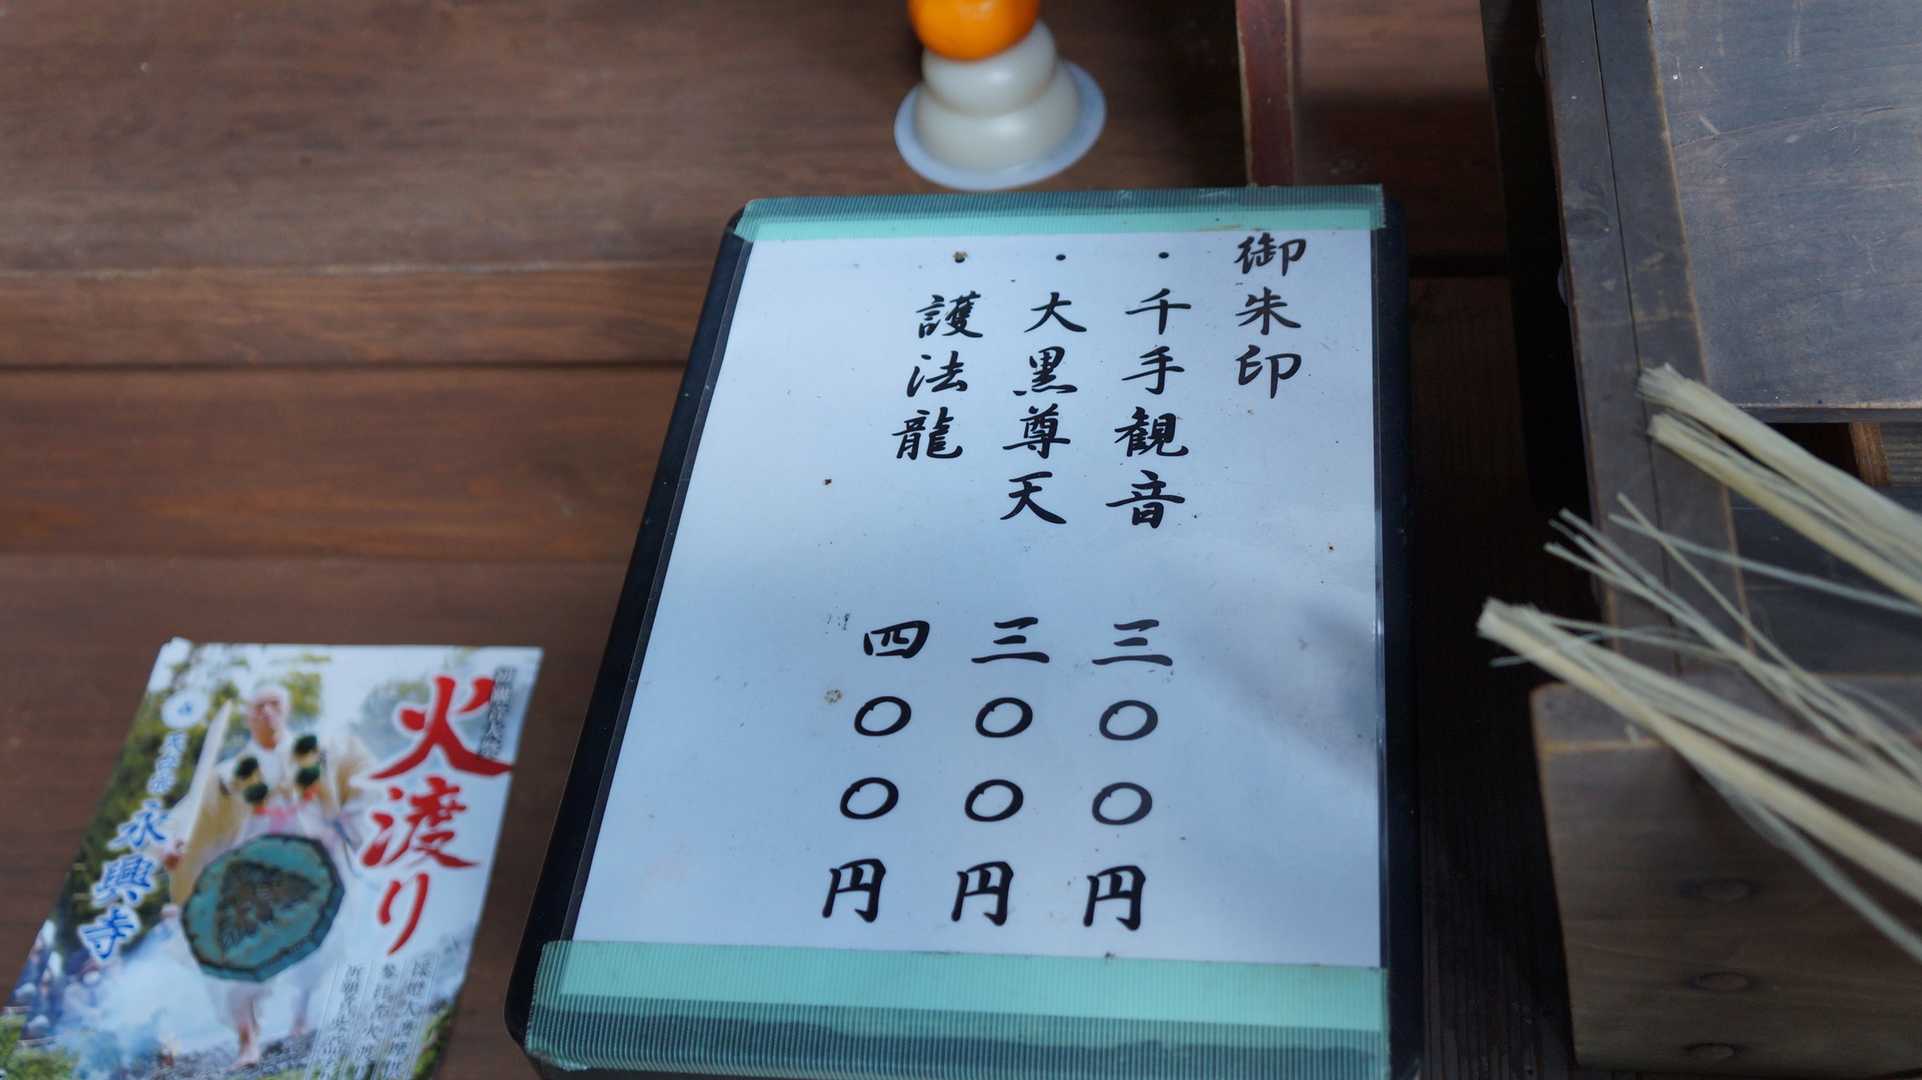 御朱印
・千手観音 三〇〇円
・大黒尊天 三〇〇円
・護法龍 四〇〇円
火渡り
永興寺